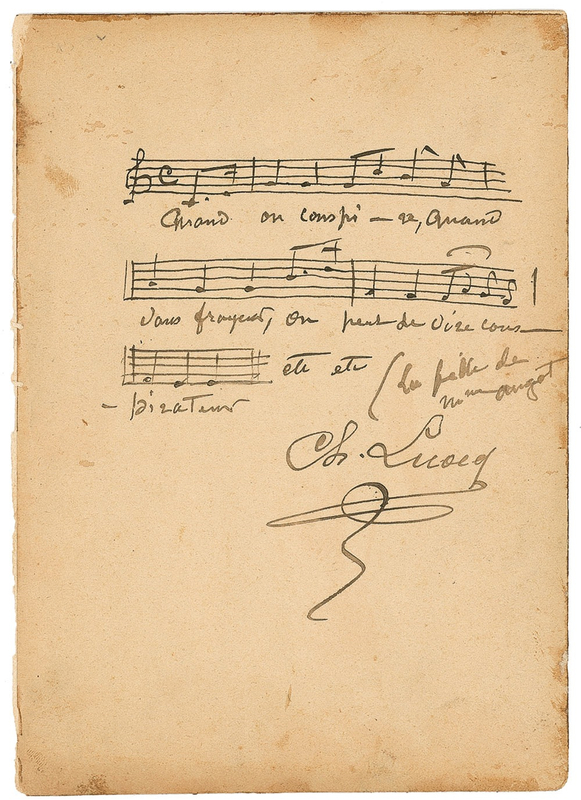 Quand on conspi - re, Quand
sans frayeur, on peut se dire cons-
etc etc
- pirateur
(La fille de
mme angot
Ch. Lecocq